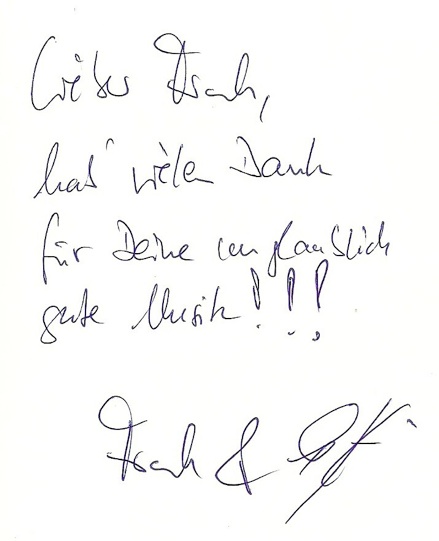 Lieber Frank,
hab' vielen Dank
für Deine unglaublich
gute Musik!!!
Frank &